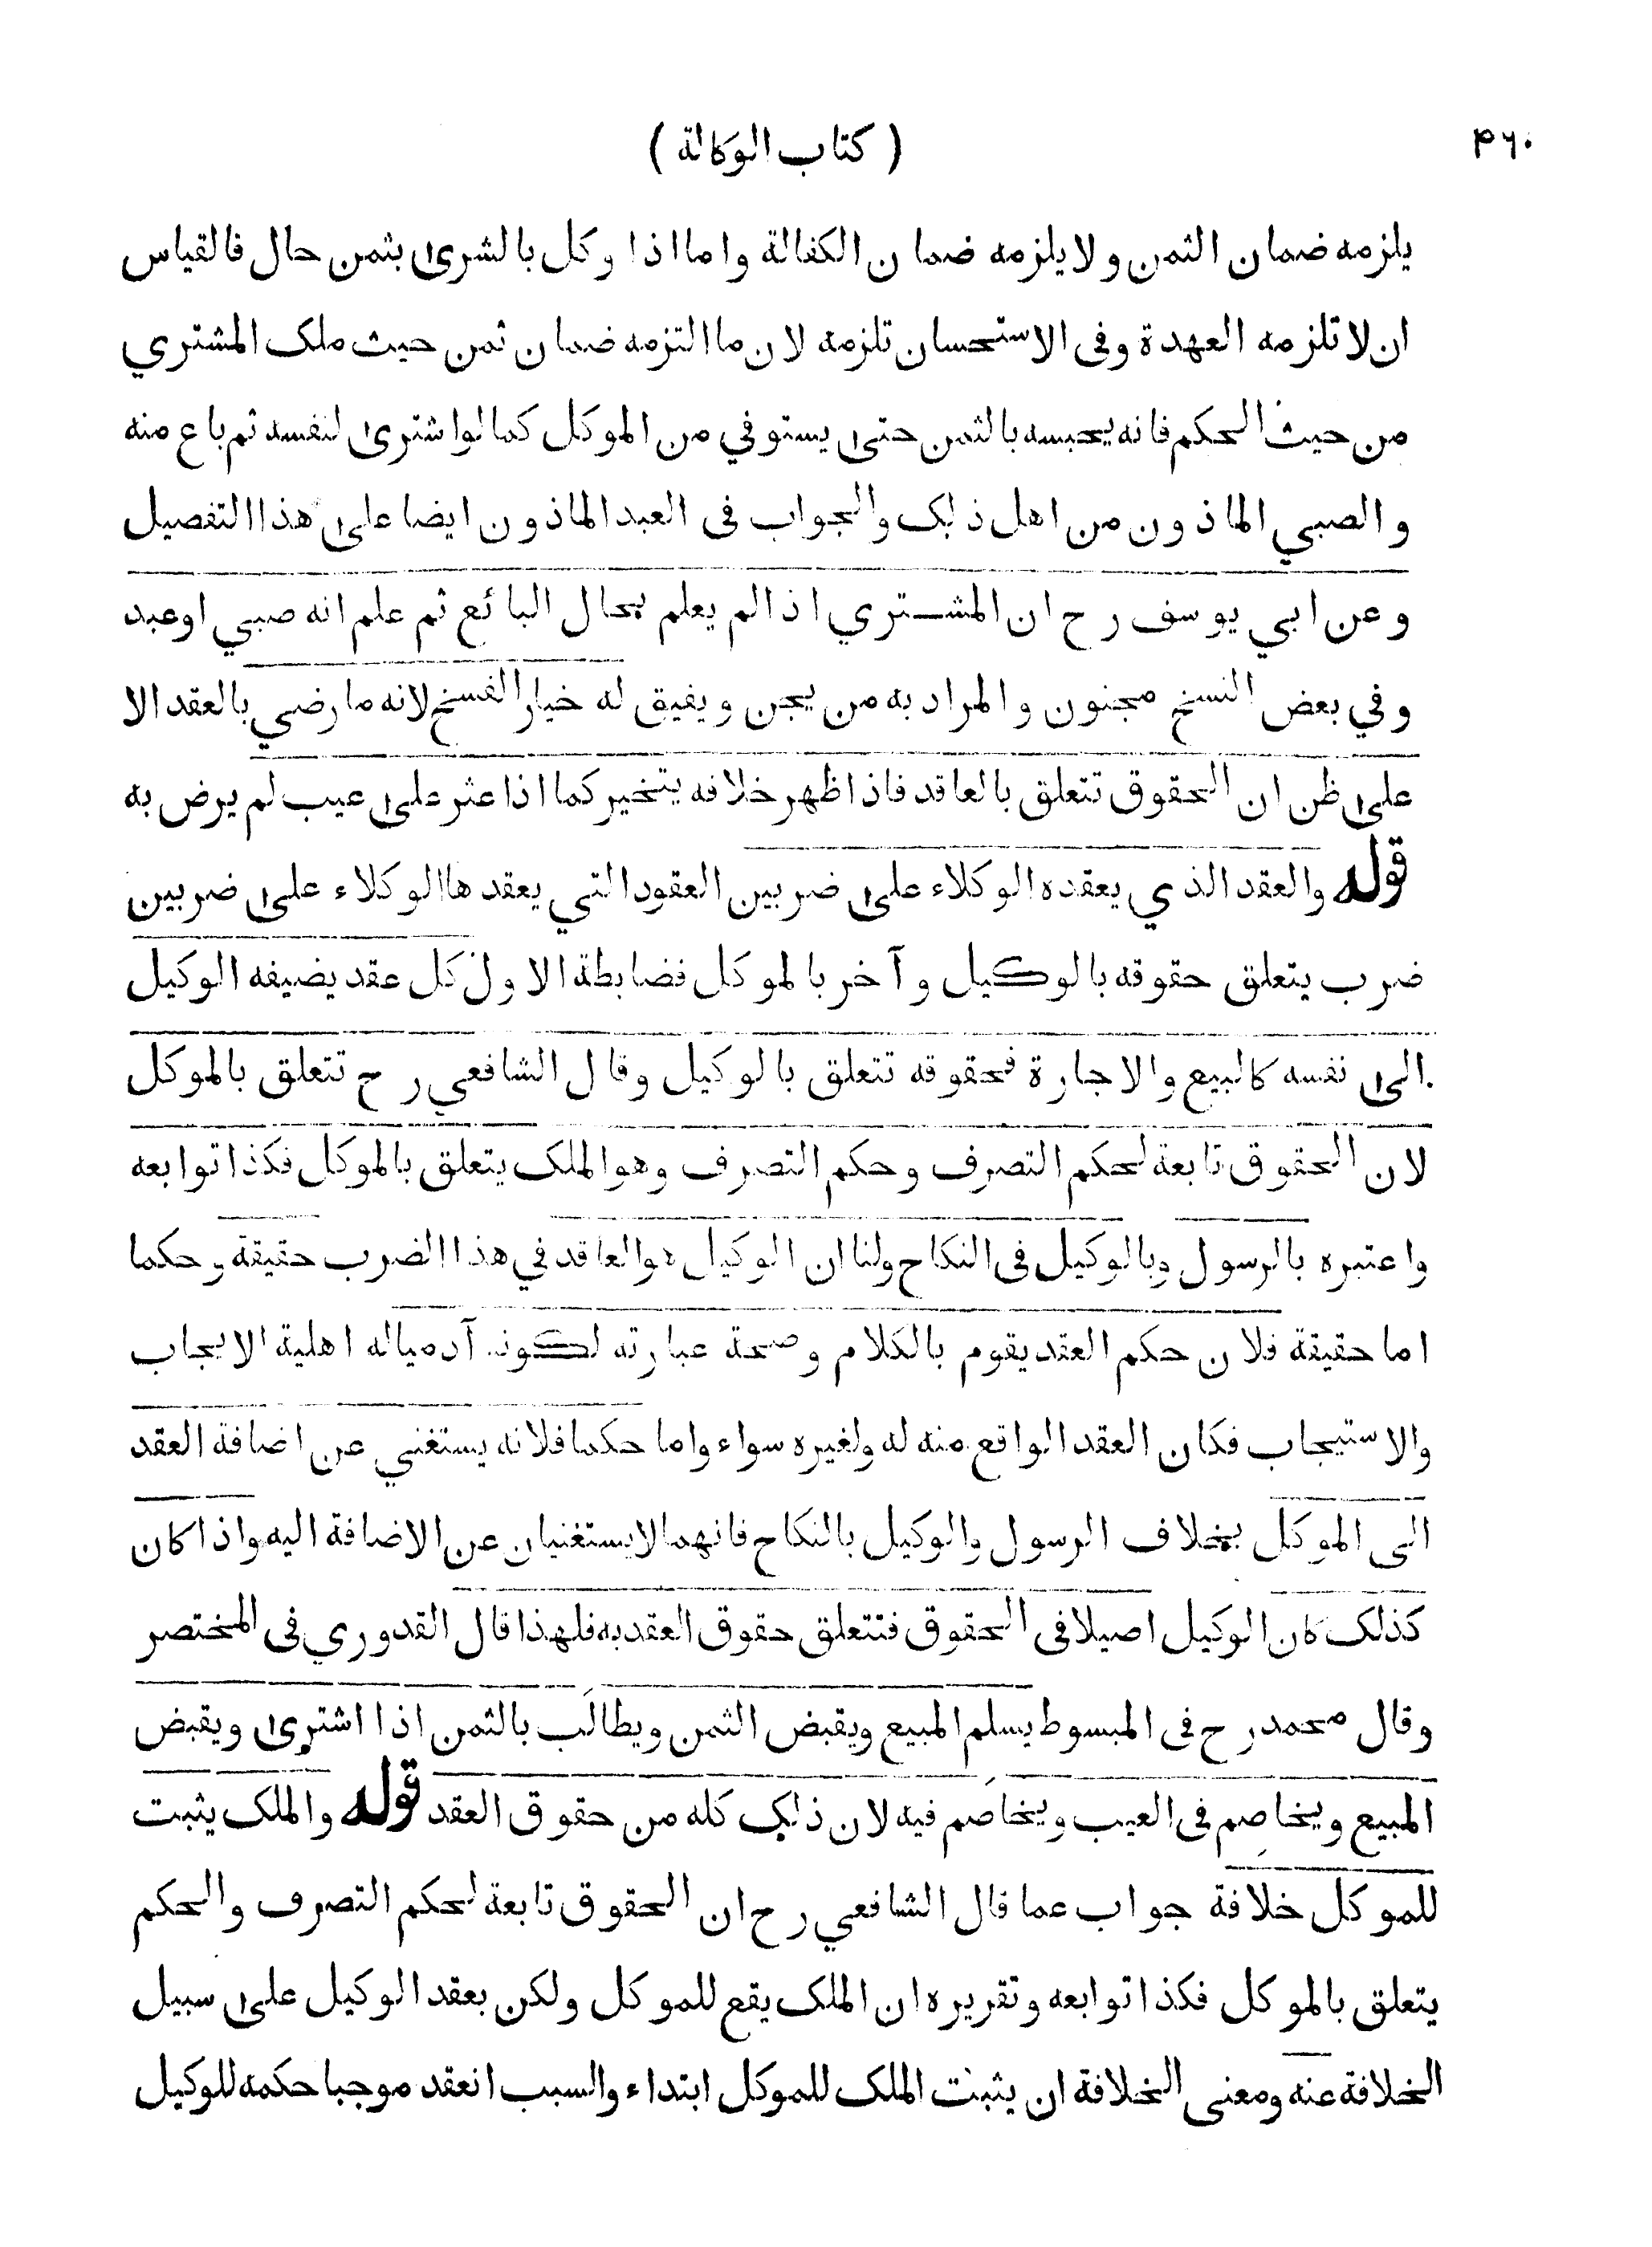 ۴۶۰
( كتاب الوكالة )
يلزمه ضمان الثمن ولا يلزمه ضمان الكفالة واما اذا وكل بالشرى بثمن حال فالقياس
ان لا تلزمه العهدة وفى الاستحسان تلزمه لان ما التزمه ضمان ثمن حيث ملك المشتري
من حيث الحكم فانه يحبسه بالثمن حتى يستوفي من الموكل كما لو اشترى لنفسه ثم باع منه
والصبي الماذون من اهل ذلك والجواب فى العبد الماذون ايضا على هذا التفصيل
وعن ابي يوسف رح ان المشتري اذا لم يعلم بحال البائع ثم علم انه صبي او عبد
وفي بعض النسخ مجنون والمراد به من يجن ويفيق له خيار الفسخ لانه ما رضي بالعقد الا
على ظن ان الحقوق تتعلق بالعاقد فاذا ظهر خلافه يتخير كما اذا عثر على عيب لم يرض به
قوله والعقد الذي يعقده الوكلاء على ضربين العقود التي يعقدها الوكلاء على ضربين
ضرب يتعلق حقوقه بالوكيل وآخر بالموكل فضابطة الاول كل عقد يضيفه الوكيل
الى نفسه كالبيع والاجارة فحقوقه تتعلق بالوكيل وقال الشافعي رح تتعلق بالموكل
لان الحقوق تابعة لحكم التصرف وحكم التصرف وهو الملك يتعلق بالموكل فكذا توابعه
واعتبره بالرسول وبالوكيل فى النكاح ولنا ان الوكيل هو العاقد في هذا الضرب حقيقة وحكما
اما حقيقة فلان حكم العقد يقوم بالكلام وصحة عبارته لكونه آدميا له اهلية الايجاب
والاستيجاب فكان العقد الواقع منه له ولغيره سواء واما حكما فلانه يستغني عن اضافة العقد
الى الموكل بخلاف الرسول والوكيل بالنكاح فانهما لا يستغنيان عن الاضافة اليه واذا كان
كذلك كان الوكيل اصيلا فى الحقوق فتتعلق حقوق العقد به فلهذا قال القدوري فى المختصر
وقال محمد رح فى المبسوط يسلم المبيع ويقبض الثمن ويطالَب بالثمن اذا اشترى ويقبض
المبيع ويخاصَم فى العيب ويخاصِم فيه لان ذلك كله من حقوق العقد قوله والملك يثبت
للموكل خلافة جواب عما قال الشافعي رح ان الحقوق تابعة لحكم التصرف والحكم
يتعلق بالموكل فكذا توابعه وتقريره ان الملك يقع للموكل ولكن بعقد الوكيل على سبيل
الخلافة عنه ومعنى الخلافة ان يثبت الملك للموكل ابتداء والسبب انعقد موجبا حكمه للوكيل